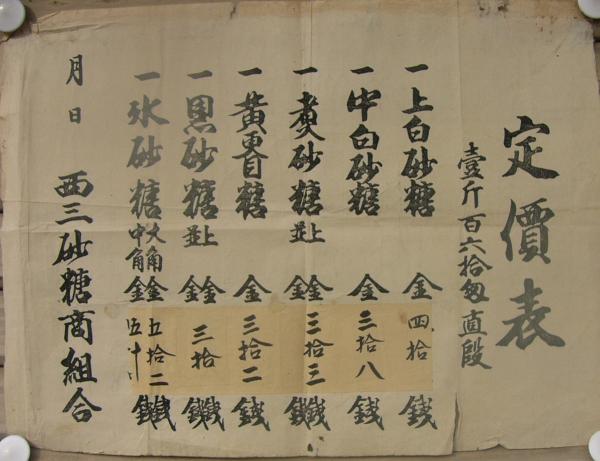 定價表
壹斤百六拾匁直段
一上白砂糖 金四拾錢
一中白砂糖 金三拾八錢
一煑砂糖 上並 金金三拾三錢錢
一黃雙目糖 金三拾二錢
一黒砂糖 上並 金金三拾錢錢
一氷砂糖 大角中角 金金五拾二五十錢錢
月 日
西三砂糖商組合